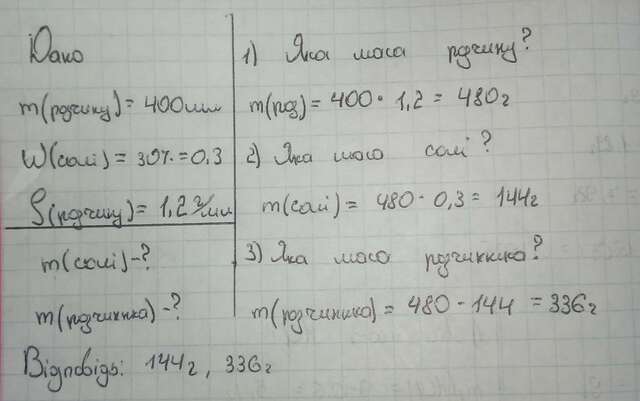 Дано
m(розчину) = 400мл
W(солі) = 30% = 0,3
ρ(розчину) = 1,2 г/мл
m(солі) - ?
m(розчинника) - ?
1) Яка маса розчину?
m(роз) = 400 · 1,2 = 480г
2) Яка маса солі?
m(солі) = 480 · 0,3 = 144г
3) Яка маса розчинника?
m(розчинника) = 480 - 144 = 336г
Відповідь: 144г, 336г